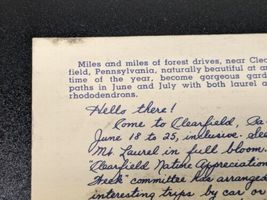 Miles and miles of forest drives, near Clea
field, Pennsylvania, naturally beautiful at a
time of the year, become gorgeous garde
paths in June and July with both laurel a
rhododendrons.
Hello there!
Come to Clearfield, Pa
June 18 to 25, inclusive. See
Mt. Laurel in full bloom.
"Clearfield Native Appreciation
Week" committee has arrange
interesting trips by car or